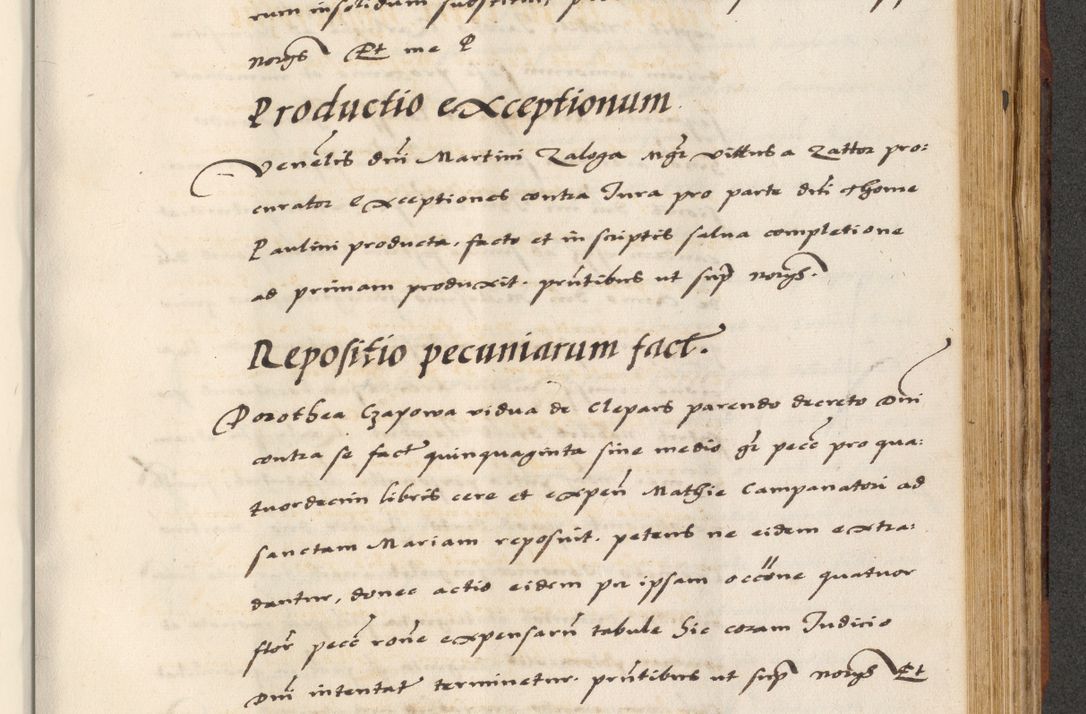 rum insolidum substitui,
norgs Et me P
Productio exceptionum
Venelis dni Martini Zaloga Ngr villus a Zator pro:
curator exceptiones contra Jura pro parte dicti Thome
Paulini producta, facto et in scriptis salva completione
ad primam produxit. pntibus ut sup norgs.
Repositio pecuniarum fact.
Dorothea Czapowa vidua de Clepars parendo decreto Dni
contra se fact quinquaginta sine medio gr pecc pro qua:
tuordecim libris cere et expen Mathie Campanatori ad
sanctam Mariam reposuit. petens ne eidem extra:
dantur, donec actio eidem per ipsam occone quatuor
flor pecc rone expensaru tabule hic coram Judicio
Dni intentat terminetur. pntibus ut sup norgs Et